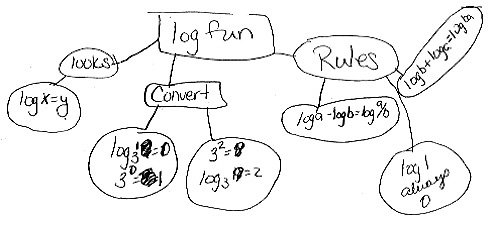 log fun
looks
log x = y
Convert
log₃1 = 0
3⁰ = 1
3² =
log₃ = 2
Rules
log a - log b = log a/b
log b + log a = log ba
log 1
always
0